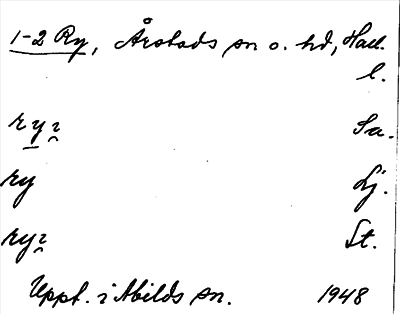 1-2 Ry, Årstads sn o. hd, Hall.
l.
ryꝛ Sa.
ry Lj.
ryꝛ St.
Uppt. i Abilds sn. 1948